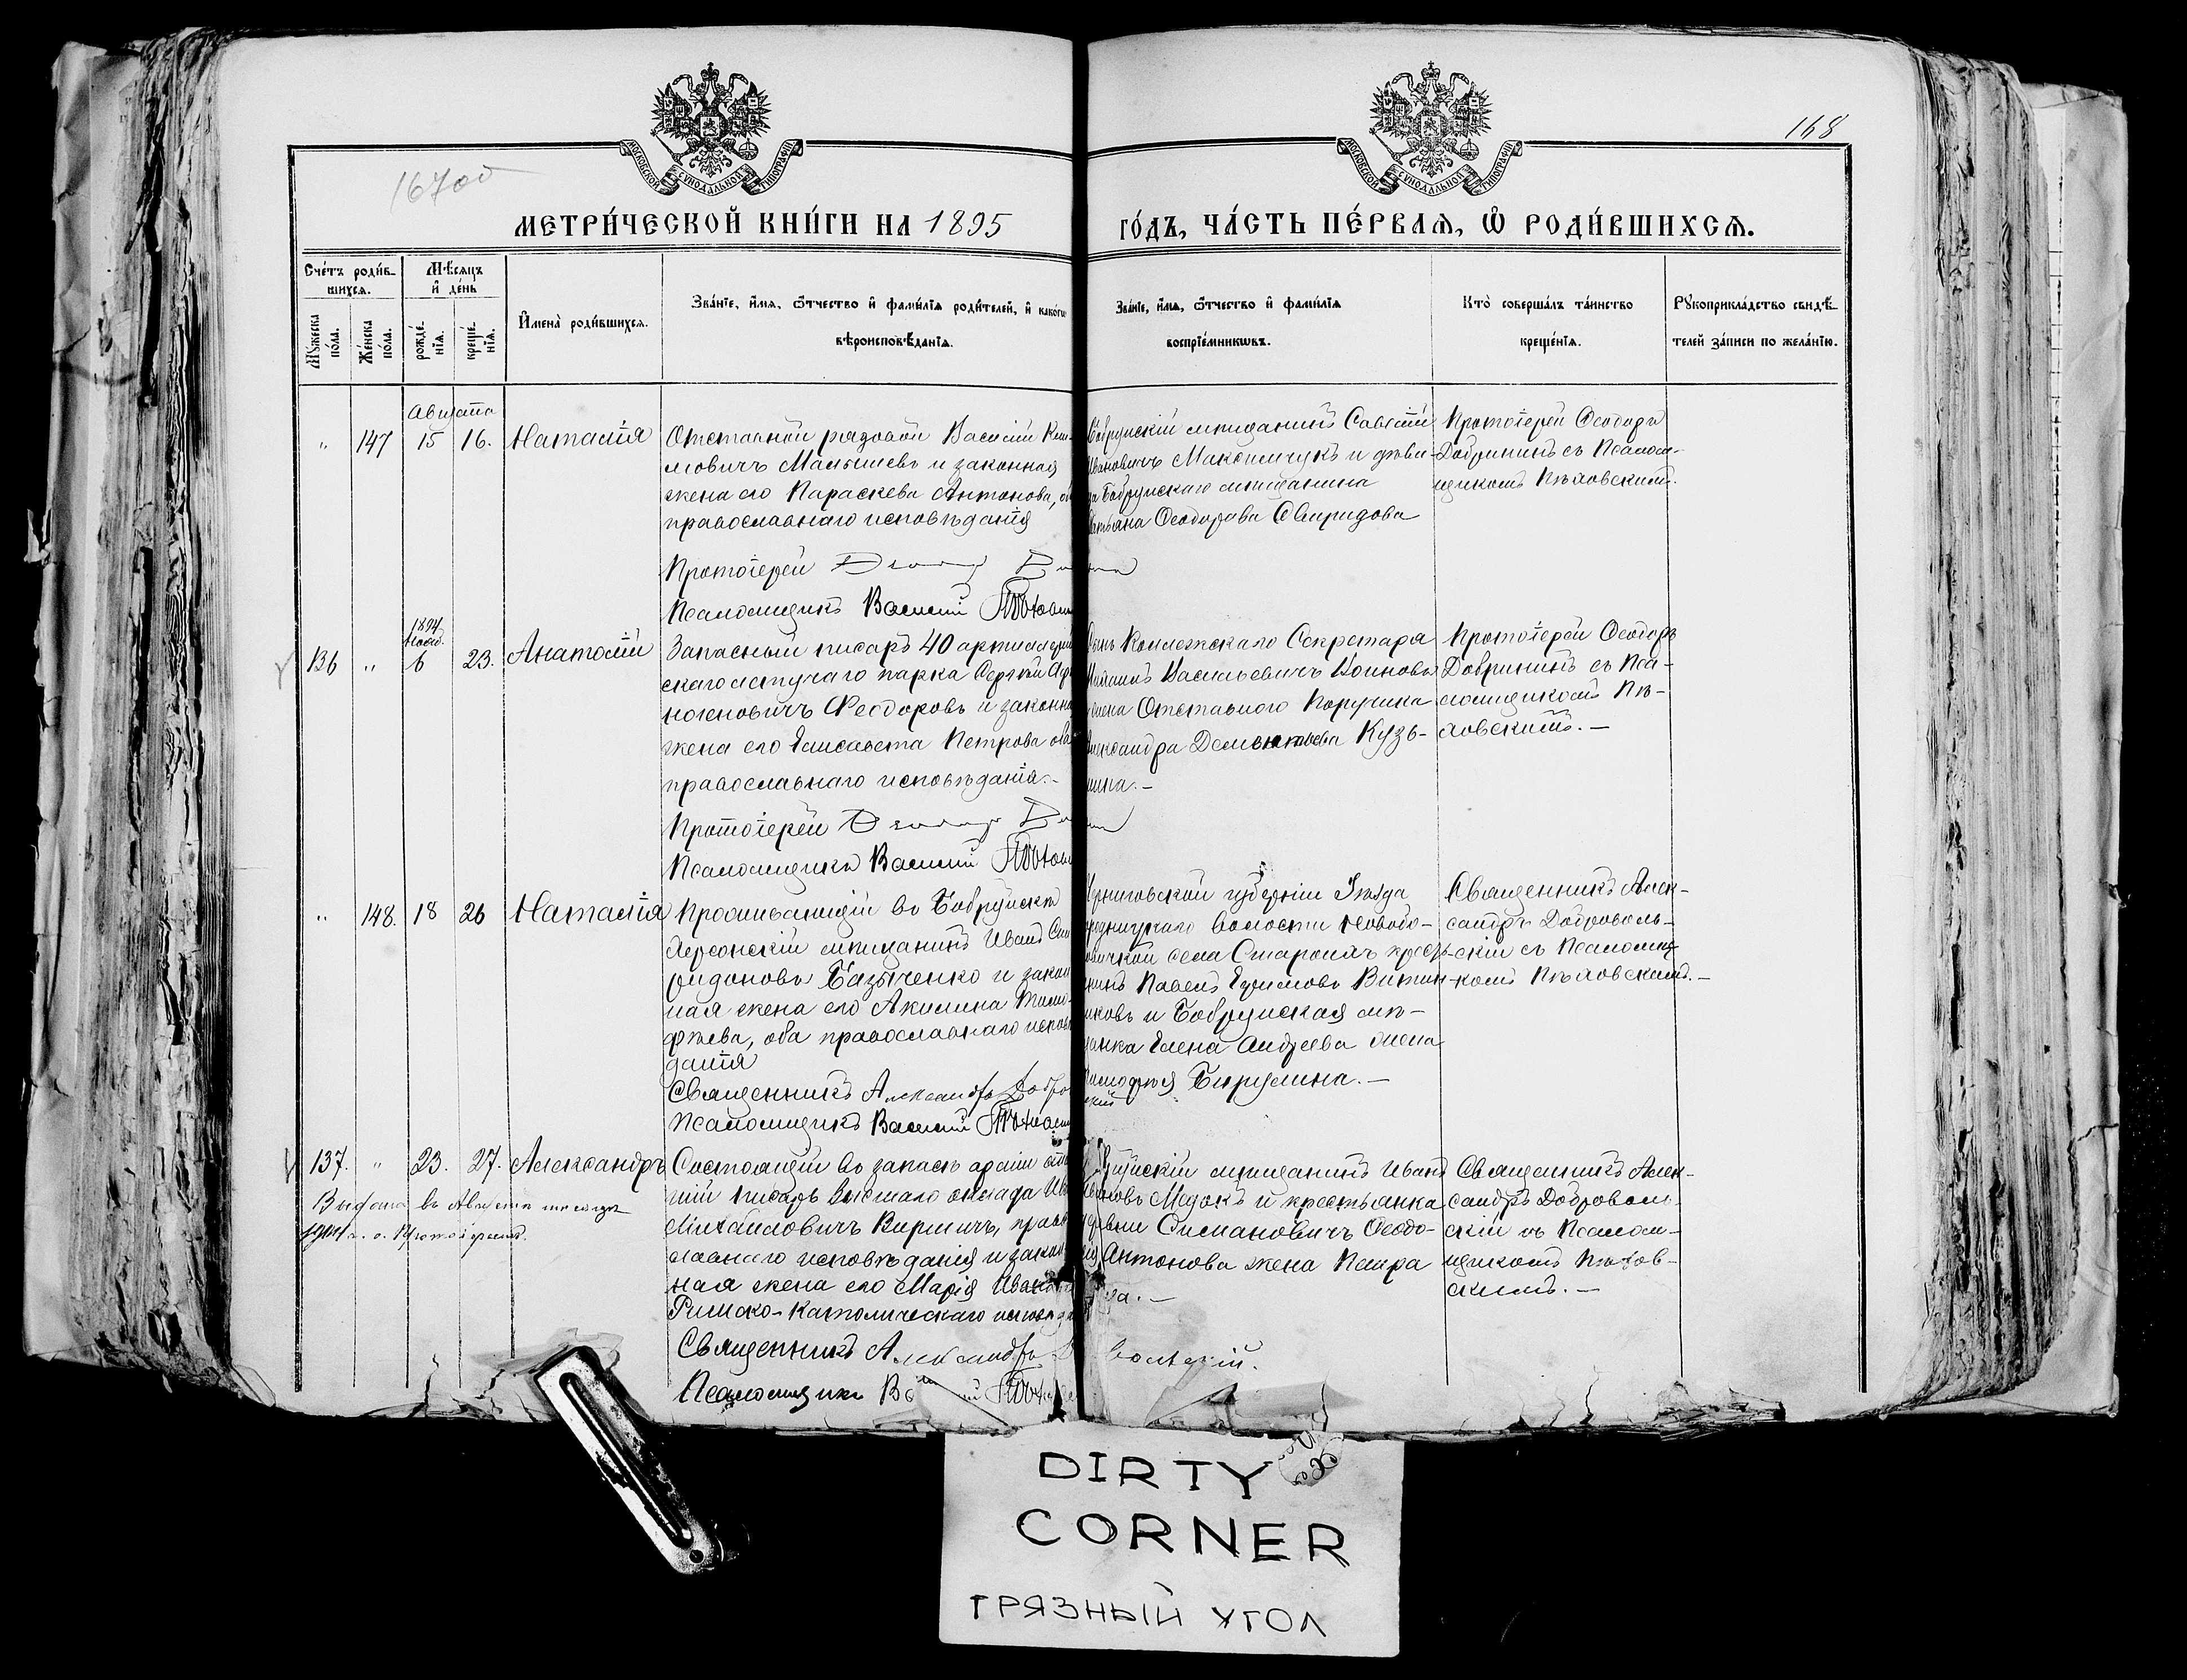 168
167об
МОСКОВСКОЙ СѴНОДАЛЬНОЙ ТИПОГРАФІИ
МОСКОВСКОЙ СѴНОДАЛЬНОЙ ТИПОГРАФІИ
МЕТРИ́ЧЕСКОЙ КНИ́ГИ НА 1895
ГО́ДЪ, ЧА́СТЬ ПЕ́РВАѦ, Ѡ҆ РОДИ́ВШИХСѦ.
Сче́тъ роди́в-
шихсѧ.
Мѣ́сѧцъ
и҆ де́нь
Мꙋ́жеска
по́ла.
Же́нска
по́ла.
рожде́-
нїѧ.
креще́-
нїѧ.
И҆мена̀ роди́вшихсѧ.
Зва́нїе, и҆́мѧ, ѻ҆́тчество и҆ фами́лїѧ роди́телей, и҆ како́гѡ
вѣроисповѣ́данїѧ.
Зва́нїе, и҆́мѧ, ѻ҆́тчество и҆ фами́лїѧ
воспрїе́мникѡвъ.
Кто̀ соверша́лъ та́инство
креще́нїѧ.
Рꙋкоприкла́дство свидѣ́-
телей за́писи по жела́нїю.
Августа
" 147 15 16. Наталія
Отставной рядовой Василій
мовичъ Малышевъ и законная
жена его Параскева Антонова,
православнаго исповѣданія
Протоіерей
Псаломщикъ Василій
Бобруйскій мѣщанинъ Савватій
Ивановичъ Максимчукъ и дѣви-
ца Бобруйскаго мѣщанина
Татьяна Ѳеодорова Свиридова
Протоіерей Ѳеодоръ
Добрининъ съ Псалом-
щикомъ Пѣховскимъ.
1894
Нояб.
136 " 6 23. Анатолій
Запасный писарь 40 артиллерій
скаго летучаго парка Сергѣй Аѳи
ногеновичъ Ѳеодоровъ и законна
жена его Елисавета Петрова оба
православнаго исповѣданія.-
Протоіерей
Псаломщикъ Василій
Сынъ Коллежскаго Секретаря
Михаилъ Васильевичъ Воиновъ
жена Отставного Поручика
Александра Дементьева Кузь-
мина.-
Протоіерей Ѳеодоръ
Добрининъ съ Пса-
ломщикомъ Пѣ-
ховскимъ.-
" 148. 18 26 Наталія
Проживающій въ Бобруйскѣ
Херсонскій мѣщанинъ Иванъ Спи
ридоновъ Базыченко и закон
ная жена его Акилина Тимо-
фѣева, оба православнаго исповѣ
данія
Священникъ Александръ Добро
скій
Псаломщикъ Василій
Черниговской губерніи Уѣзда
Городницкаго волости Новобо-
ровичкой села Старыхъ кресть-
нинъ Павелъ Ефимовъ Витин-
никовъ и Бобруйская мѣ-
щанка Елена Андреева жена
Тимофѣя Бирулина.-
Священникъ Алек-
сандръ Доброволь-
скій съ Псаломщи-
комъ Пѣховскимъ.-
137. " 23. 27. Александръ
Выдано въ Августѣ мѣсяцѣ
1904 г. о. Протоіереемъ.
Состоящій въ запасѣ арміи
шій писарь высшаго оклада Ива
Михайловичъ Киршичъ, право
славнаго исповѣданія и закон
ная жена его Марія Иванова
Римско-Католическаго исповѣда
Священникъ Александръ Добро вольскій.
Псаломщикъ Василій
Бобруйскій мѣщанинъ Иванъ
Ивановъ Медокъ и крестьянка
деревни Симановичъ Ѳеодо-
сія Антонова жена Петра
Священникъ Алек-
сандръ Доброволь-
скій съ Псалом-
щикомъ Пѣхов-
скимъ.-
DIRTY
CORNER
ГРЯЗНЫЙ УГОЛ